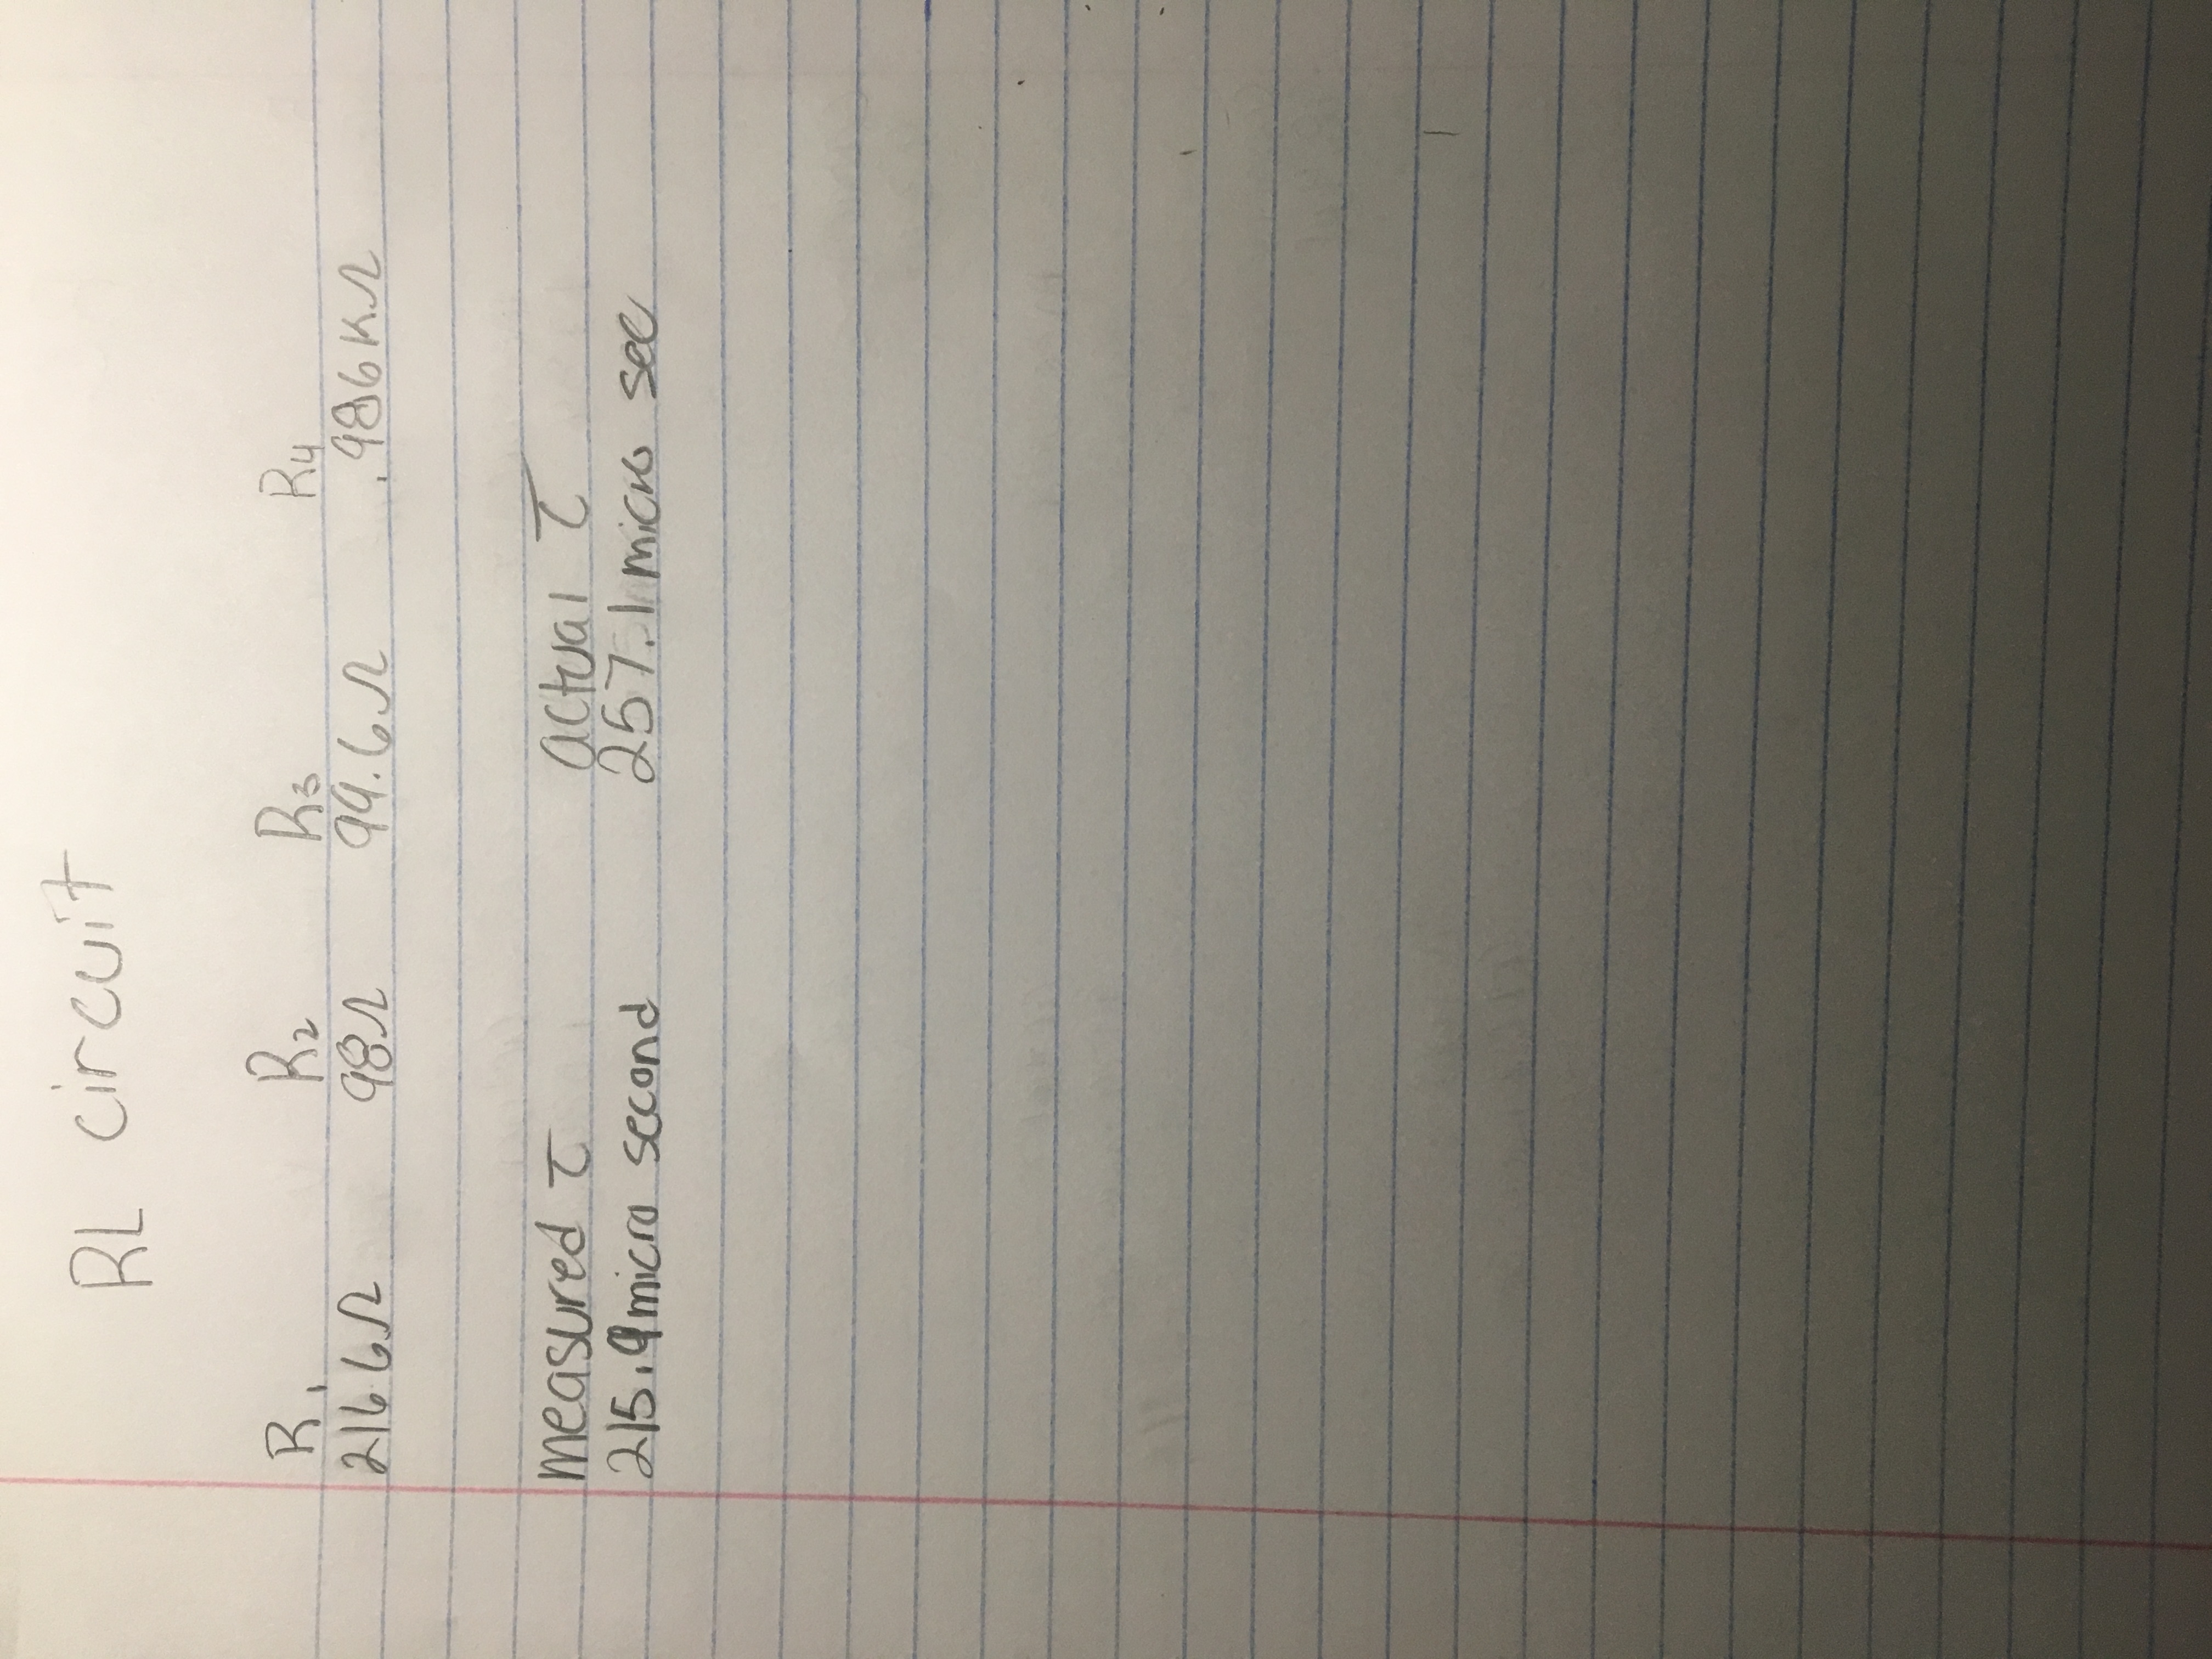 RL circuit
R1 R2 R3 R4
216.6Ω 98Ω 99.6Ω .986KΩ
measured τ actual τ
215.9 micro second 257.1 micro sec